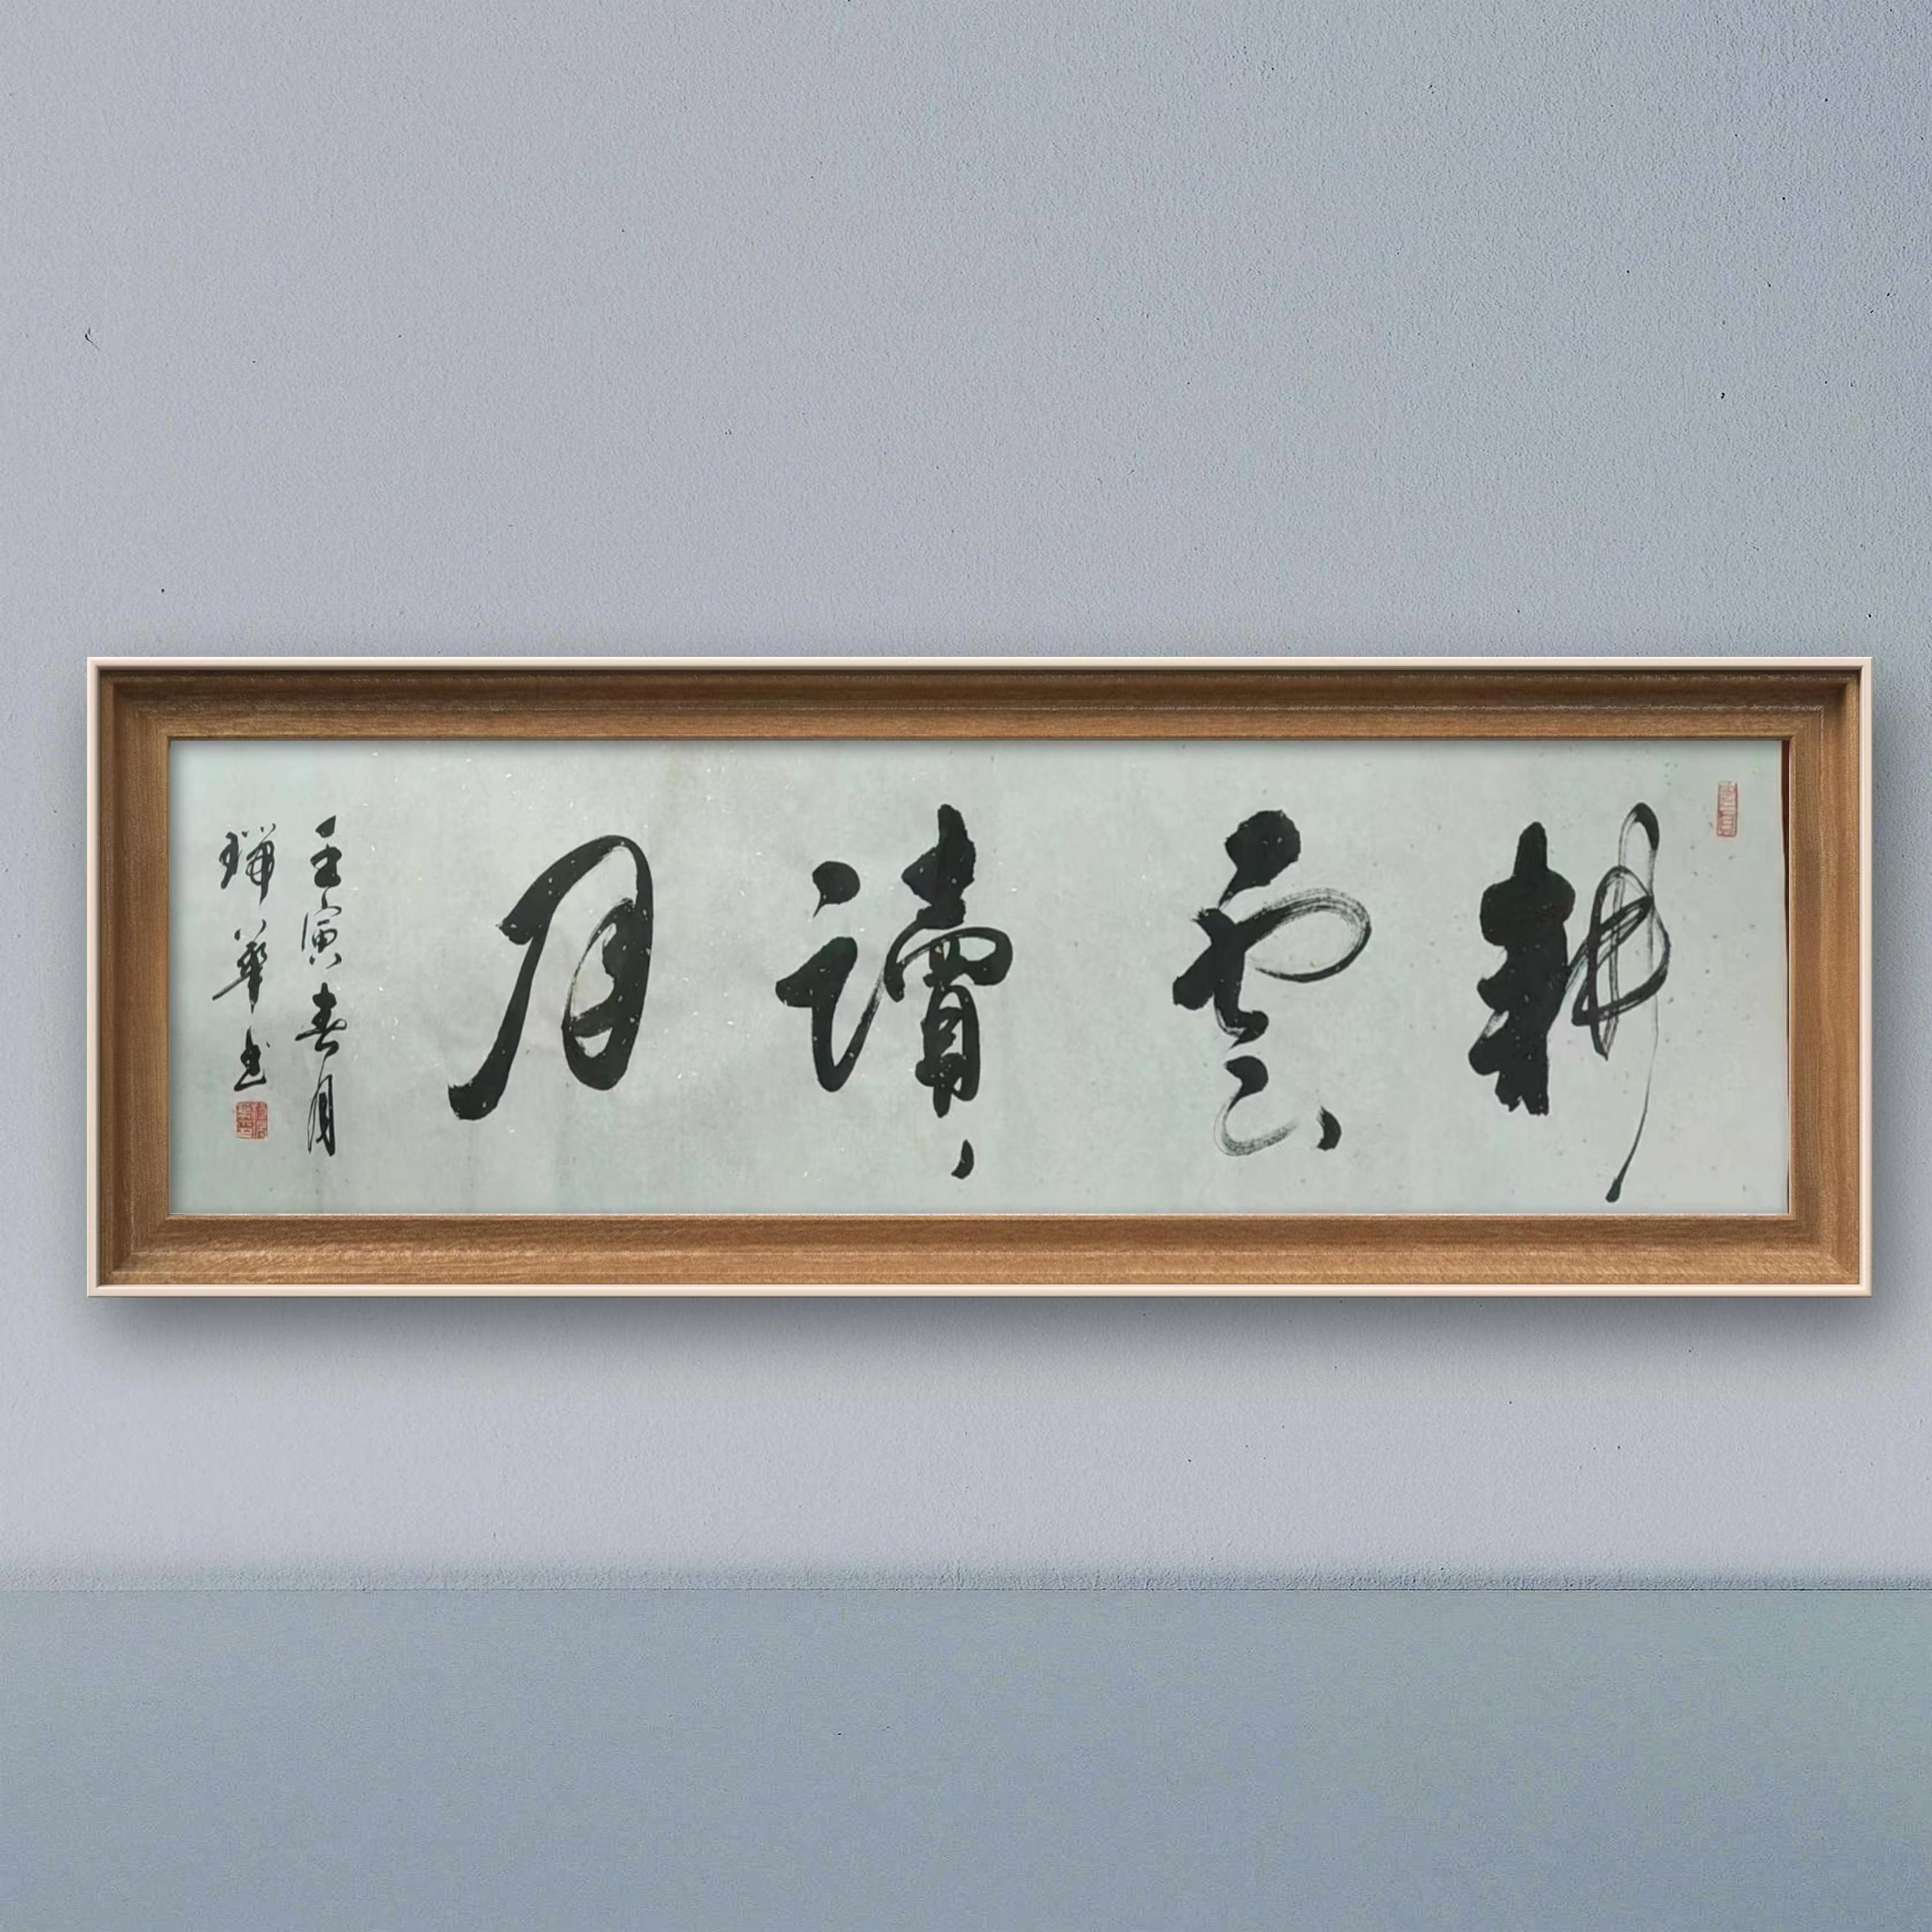 耕雲讀月
壬寅春月
瑞華书